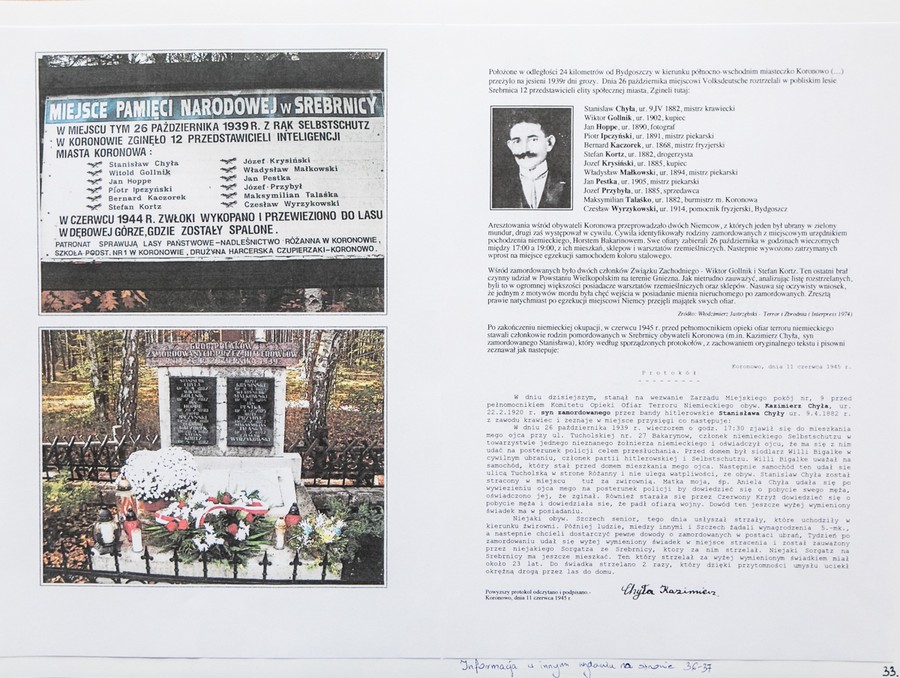 MIEJSCE PAMIĘCI NARODOWEJ W SREBRNICY
W MIEJSCU TYM 26 PAŹDZIERNIKA 1939 R. Z RĄK SELBSTSCHUTZ
W KORONOWIE ZGINĘŁO 12 PRZEDSTAWICIELI INTELIGENCJI
MIASTA KORONOWA:
Stanisław Chyła
Witold Gollnik
Jan Hoppe
Piotr Ipezyński
Bernard Kaczorek
Stefan Kortz
Józef Krysiński
Władysław Małkowski
Jan Pestka
Józef Przybył
Maksymilian Talaśka
Czesław Wyrzykowski
W CZERWCU 1944 R. ZWŁOKI WYKOPANO I PRZEWIEZIONO DO LASU
W DĘBOWEJ GÓRZE, GDZIE ZOSTAŁY SPALONE.
PATRONAT SPRAWUJĄ LASY PAŃSTWOWE - NADLEŚNICTWO RÓŻANNA W KORONOWIE,
SZKOŁA PODST. NR 1 W KORONOWIE, DRUŻYNA HARCERSKA CZUPIERZAKI-KORONOWO.
GRÓB POLAKÓW
ZAMORDOWANYCH PRZEZ HITLEROWCÓW
Położone w odległości 24 kilometrów od Bydgoszczy w kierunku północno-wschodnim miasteczko Koronowo (...)
przeżyło na jesieni 1939r dni grozy. Dnia 26 października miejscowi Volksdeutsche rozstrzelali w pobliskim lesie
Srebrnica 12 przedstawicieli elity społecznej miasta. Zginęli tutaj:
Stanisław Chyła, ur. 9.IV 1882, mistrz krawiecki
Wiktor Gollnik, ur. 1902, kupiec
Jan Hoppe, ur. 1890, fotograf
Piotr Ipczyński, ur. 1891, mistrz piekarski
Bernard Kaczorek, ur. 1868, mistrz fryzjerski
Stefan Kortz, ur. 1882, drogerzysta
Jozef Krysiński, ur. 1885, kupiec
Władysław Małkowski, ur. 1894, mistrz piekarski
Jan Pestka, ur. 1905, mistrz piekarski
Jozef Przybyła, ur. 1885, sprzedawca
Maksymilian Talaśko, ur. 1882, burmistrz m. Koronowa
Czesław Wyrzykowski, ur. 1914, pomocnik fryzjerski, Bydgoszcz
Aresztowania wśród obywateli Koronowa przeprowadzało dwóch Niemcow, z których jeden był ubrany w zielony
mundur, drugi zaś występował w cywilu. Cywila identyfikowały rodziny zamordowanych z miejscowym urzędnikiem
pochodzenia niemieckiego, Horstem Bakarinowem. Swe ofiary zabierali 26 października w godzinach wieczornych
między 17:00 a 19:00, z ich mieszkań, sklepow i warsztatów rzemieślniczych. Następnie wywożono zatrzymanych
wprost na miejsce egzekucji samochodem koloru stalowego.
Wśród zamordowanych było dwóch członków Związku Zachodniego - Wiktor Gollnik i Stefan Kortz. Ten ostatni brał
czynny udział w Powstaniu Wielkopolskim na terenie Gniezna. Jak nietrudno zauważyć, analizując listę rozstrzelanych,
byli to w ogromnej większości posiadacze warsztatów rzemieślniczych oraz sklepów. Nasuwa się oczywisty wniosek,
że jednym z motywów mordu była chęć wejścia w posiadanie mienia nieruchomego po zamordowanych. Zresztą
prawie natychmiast po egzekucji miejscowi Niemcy przejęli majątek swych ofiar.
Źródło: Włodzimierz Jastrzębski - Terror i Zbrodnia ( Interpress 1974)
Po zakończeniu niemieckiej okupacji, w czerwcu 1945 r. przed pełnomocnikiem opieki ofiar terroru niemieckiego
stawali członkowie rodzin pomordowanych w Srebrnicy obywateli Koronowa (m.in. Kazimierz Chyła, syn
zamordowanego Stanisława), który według sporządzonych protokołów, z zachowaniem oryginalnego tekstu i pisowni
zeznawał jak następuje:
Koronowo, dnia 11 czerwca 1945 r.
P r o t o k ó ł
----------
W dniu dzisiejszym, stanął na wezwanie Zarządu Miejskiego pokój nr, 9 przed
pełnomocnikiem Komitetu Opieki Ofiar Terroru Niemieckiego obyw. Kazimierz Chyła, ur.
22.2.1920 r. syn zamordowanego przez bandy hitlerowskie Stanisława Chyły ur. 9.4.1882 r.
z zawodu krawiec i zeznaje w miejsce przysięgi co następuje:
W dniu 26 października 1939 r. wieczorem o godz. 17:30 zjawił się do mieszkania
mego ojca przy ul. Tucholskiej nr. 27 Bakarynow, członek niemieckiego Selbstschutzu w
towarzystwie jednego nieznanego żołnierza niemieckiego i oświadczył ojcu, że ma się z nim
udać na posterunek policji celem przesłuchania. Przed domem był siodlarz Willi Bigalke w
cywilnym ubraniu, członek partii hitlerowskiej i Selbschutzu. Willi Bigalke uważał na
samochód, który stał przed domem mieszkania mego ojca. Następnie samochód ten udał sie
ulicą Tucholska w strone Różanny i nie ulega watpliwości, ze obyw. Stanisław Chyła został
stracony w miejscu tuż za zwirownią. Matka moja, śp. Aniela Chyła udała się po
wywiezieniu ojca mego na posterunek policji by dowiedzieć się o pobycie swego męża,
oświadczono jej, że zginął. Również starała się przez Czerwony Krzyż dowiedzieć się o
pobycie męża i dowiedziała sie, że padł ofiarą wojny. Dowód ten jeszcze wyżej wymieniony
świadek ma w posiadaniu.
Niejaki obyw. Szczech senior, tego dnia usłyszał strzały, które uchodziły w
kierunku żwirowni. Później ludzie, miedzy innymi i Szczech żadali wynagrodzenia 5.-mk.,
a następnie chcieli dostarczyć pewne dowody o zamordowanych w postaci ubrań, Tydzień po
zamordowaniu udał się wyżej wymieniony świadek w miejsce stracenia i został zauważony
przez niejakiego Sorgatza ze Srebrnicy, ktory za nim strzelał. Niejaki Sorgatz na
Srebrnicy ma jeszcze mieszkać. Ten który strzelał za wyżej wymienionym świadkiem miał
około 23 lat. Do świadka strzelano 2 razy, który dzięki przytomności umysłu uciekł
okrężna drogą przez las do domu.
Powyższy protokół odczytano i podpisano -
Koronowo, dnia 11 czerwca 1945 r.
Chyła Kazimierz
Informacja w innym wydaniu na stronie 36-37
33.